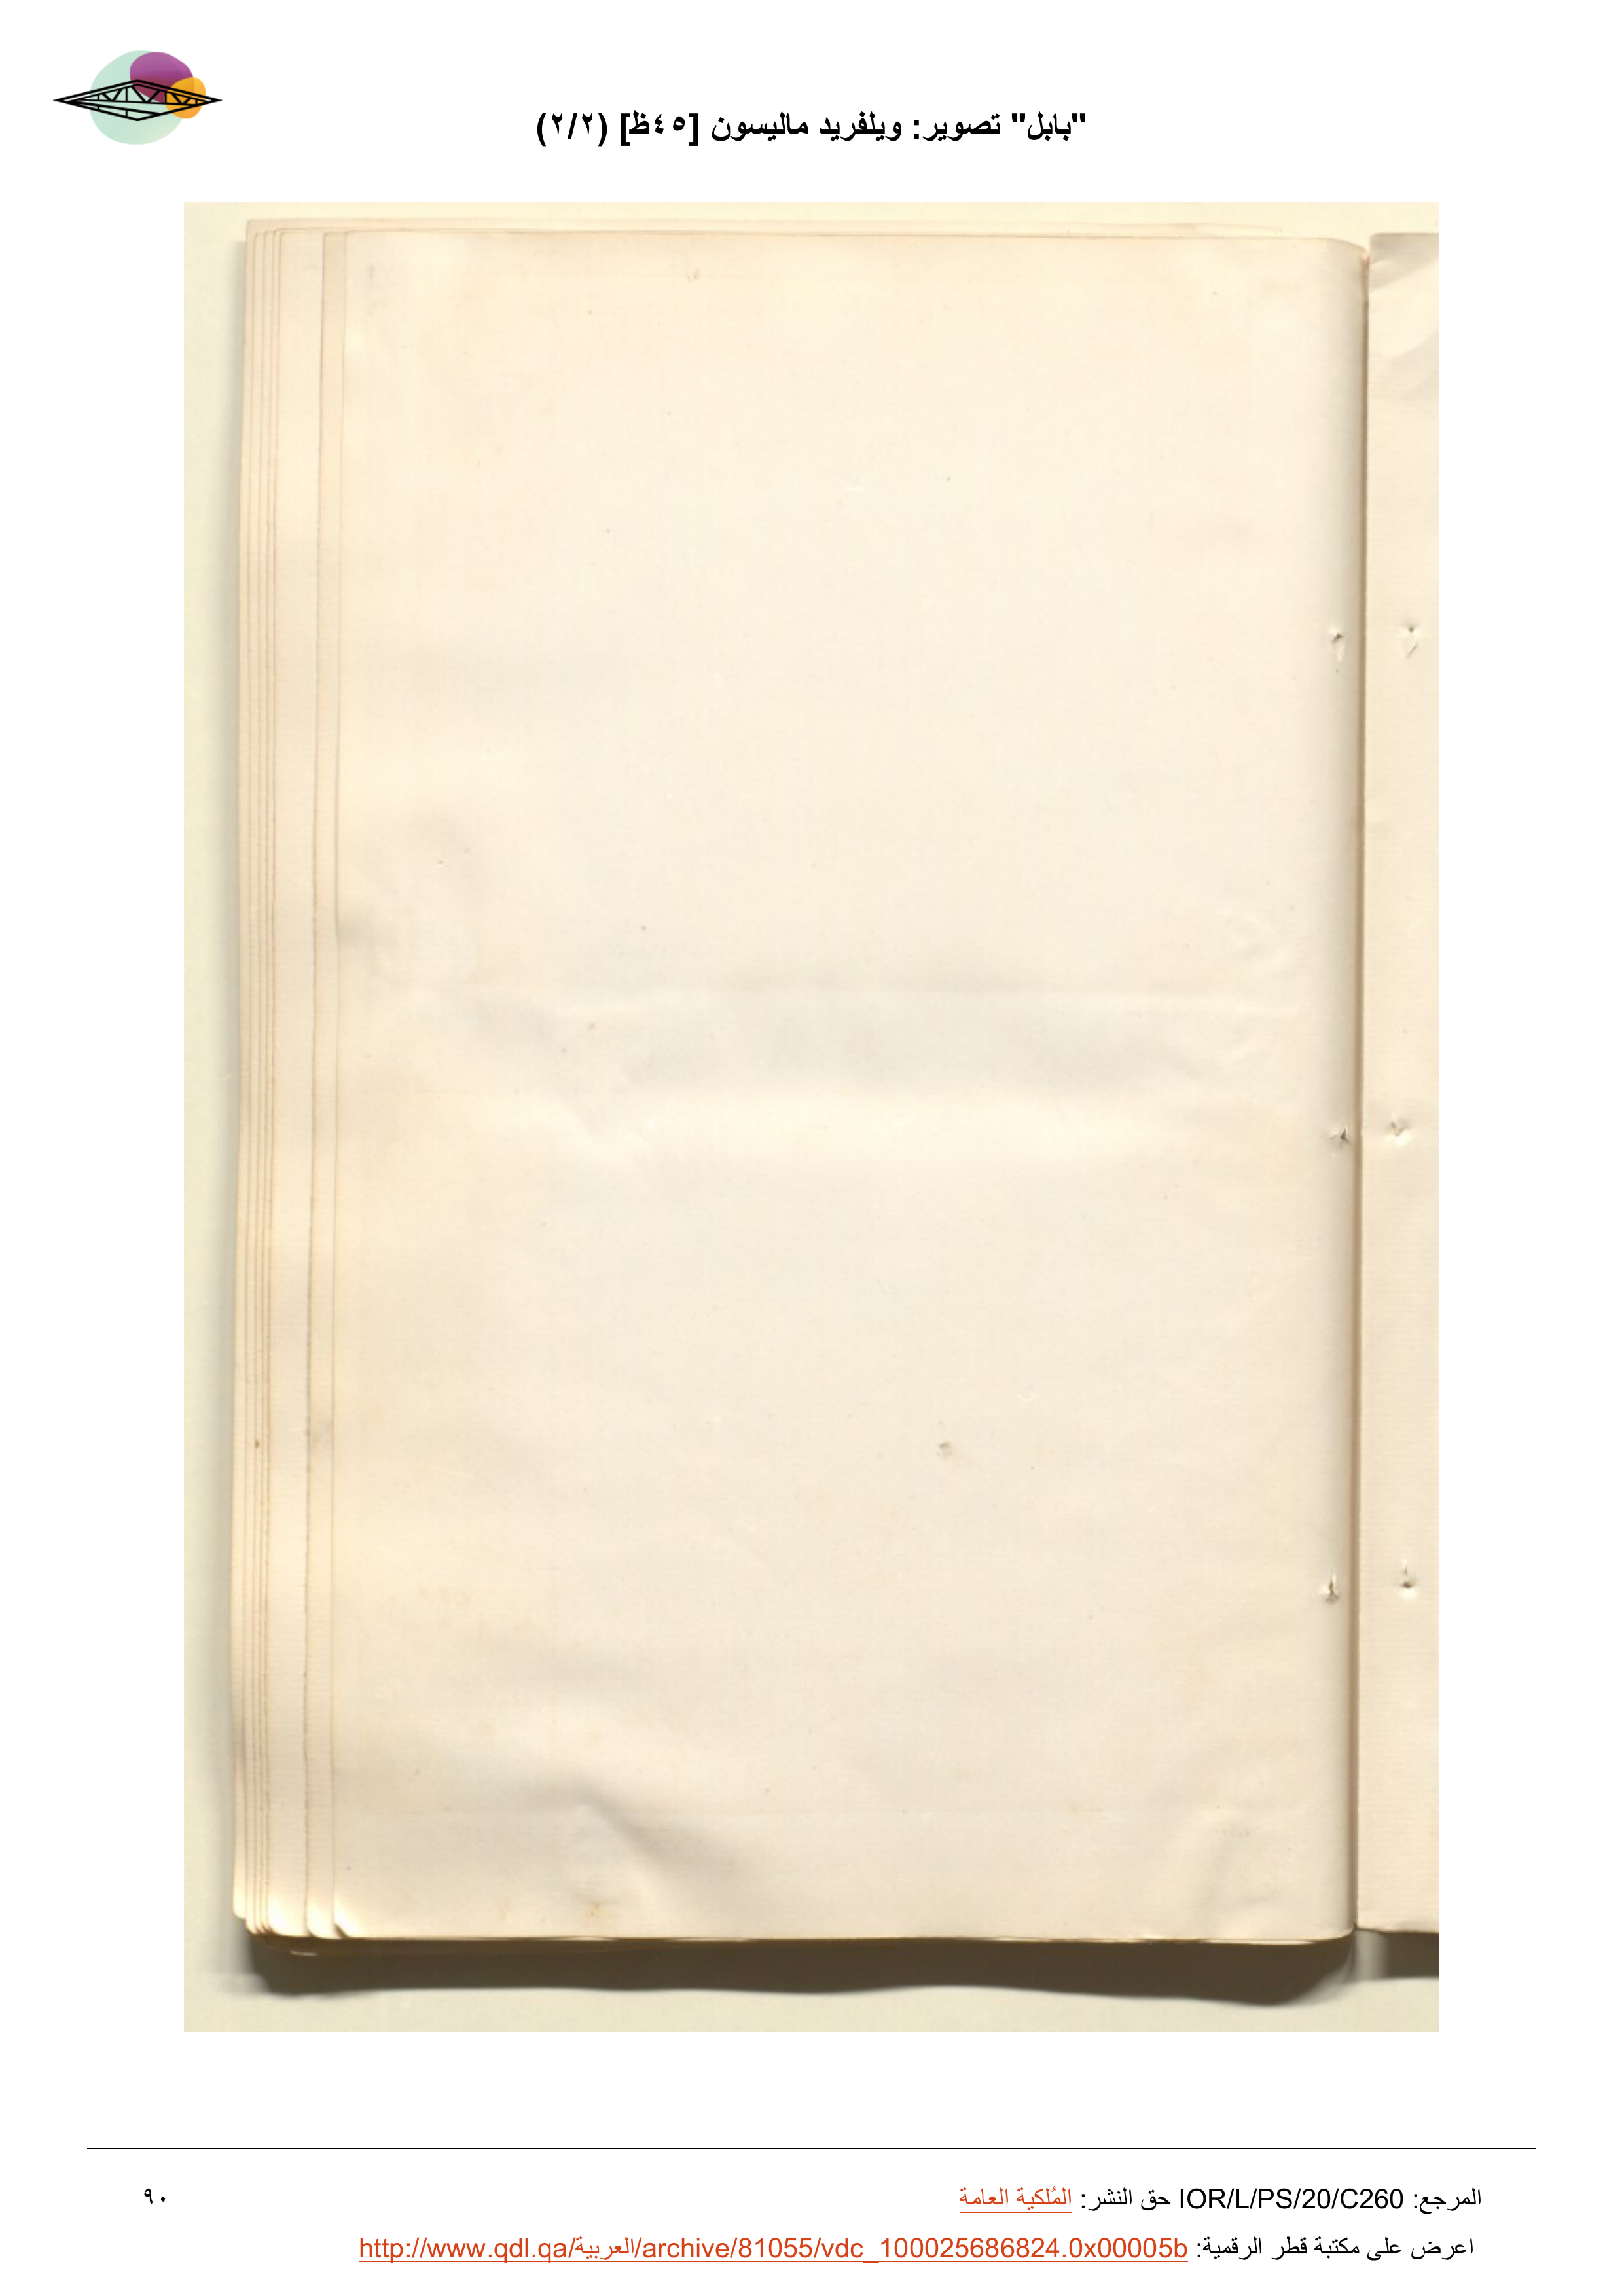 "بابل" تصوير: ويلفريد ماليسون [٤٥ظ] (٢/٢)
المرجع: IOR/L/PS/20/C260 حق النشر: المُلكية العامة
٩٠
اعرض على مكتبة قطر الرقمية: http://www.qdl.qa/العربية/archive/81055/vdc_100025686824.0x00005b